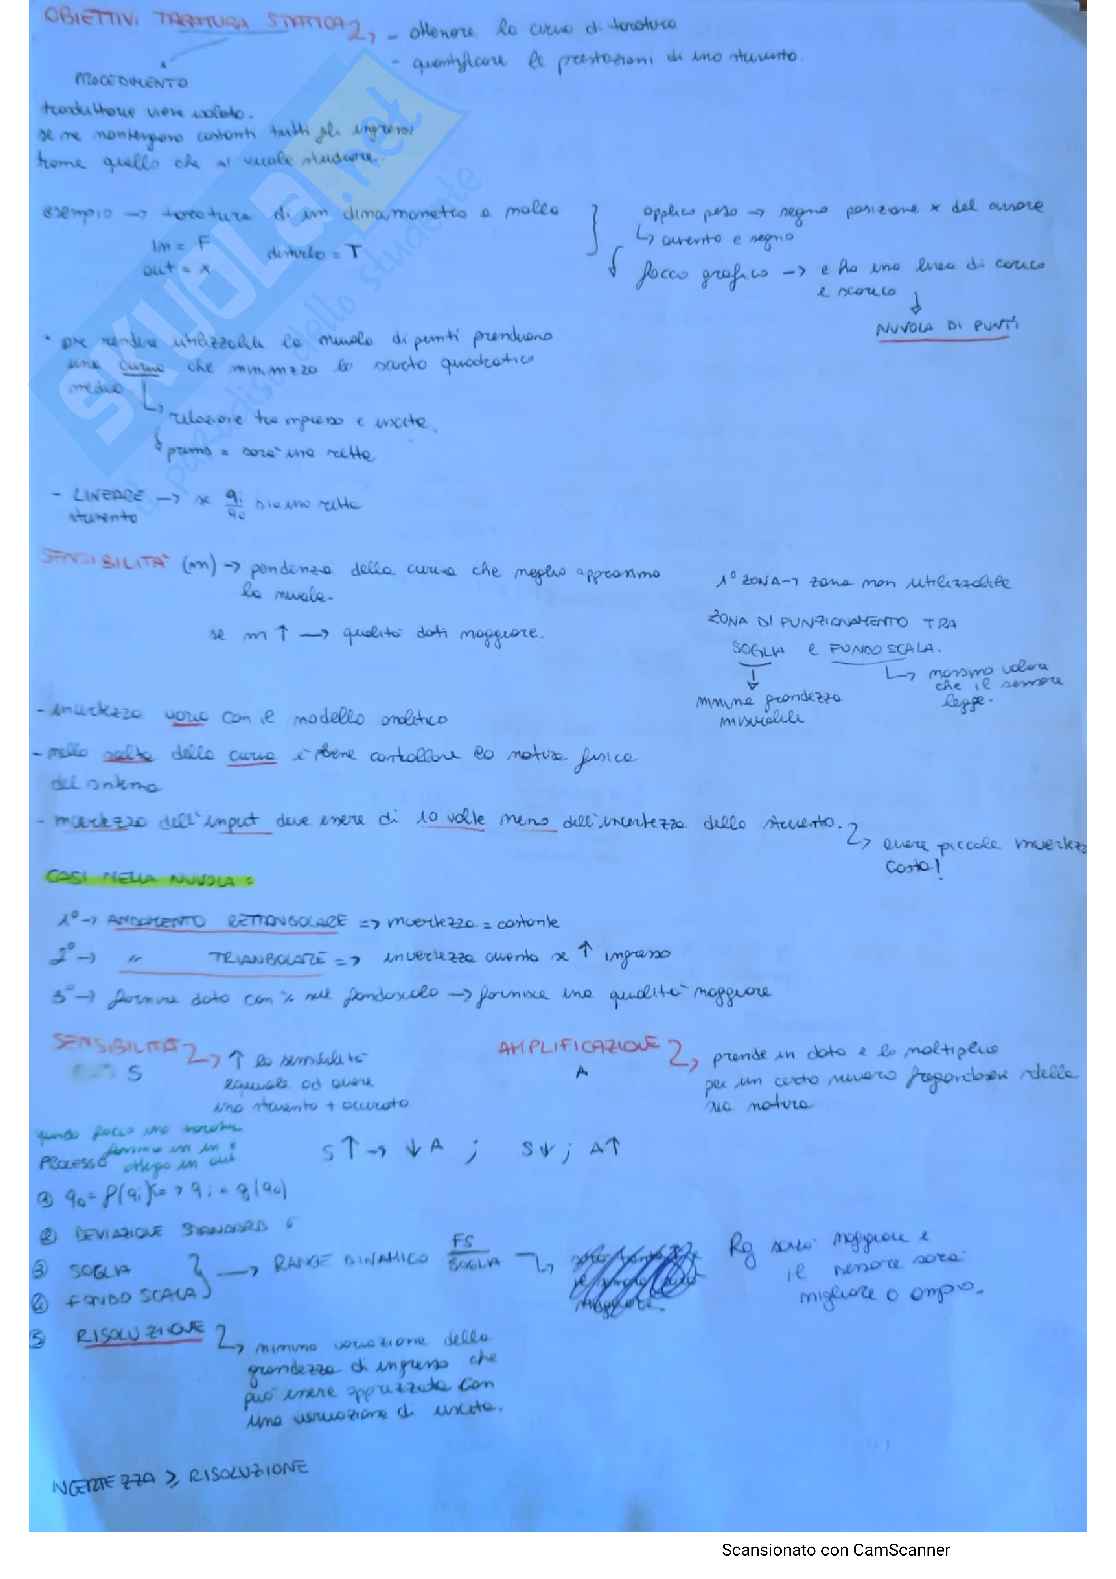 OBIETTIVI TARATURA STATICA → - ottenere la curva di taratura
- quantificare le prestazioni di uno strumento.
PROCEDIMENTO
trasduttore viene isolato.
se ne mantengono costanti tutti gli ingressi
tranne quello che si vuole studiare.
esempio → taratura di un dinamometro a molla
In = F
out = x
disturbo = T
applico peso → segno posizione x del cursore
↳ aumento e segno
↓ faccio grafico → e ho una linea di carico
e scarico
NUVOLA DI PUNTI
• per rendere utilizzabile la nuvola di punti prendiamo
una curva che minimizza lo scarto quadratico
medio
↳ relazione tra ingresso e uscita.
↳ prima = sarà una retta
- LINEARE → x qi/q0 siamo retta
strumento
SENSIBILITA' (m) → pendenza della curva che meglio approssima
la nuvola.
se m ↑ → qualità dati maggiore.
1° ZONA → zona non utilizzabile
ZONA DI FUNZIONAMENTO TRA
SOGLIA e FUNDO SCALA.
↳ massimo valore
che il sensore
legge.
minima grandezza
misurabile
- incertezza varia con il modello analitico
- nella scelta della curva è bene controllare la natura fisica
del sistema
- incertezza dell'input deve essere di 10 volte meno dell'incertezza dello strumento.
↳ avere piccola incertezza
costa!
CASI NELLA NUVOLA :
1° → ANDAMENTO RETTANGOLARE => incertezza = costante
2° → " TRIANGOLARE => incertezza aumenta se ↑ ingresso
3° → fornire dato con % sul fondoscala → fornisce una qualità maggiore
SENSIBILITA' → ↑ la sensibilità
S
equivale ad avere
uno strumento + accurato
AMPLIFICAZIONE →
A
prende in dato e lo moltiplica
per un certo numero fregandosene della
sua natura
quando faccio una taratura
fornisco un in e
ottengo un out
PROCESSO
S ↑ → ↓ A ; S ↓ ; A ↑
① q0 = f(qi) => qi = g(q0)
② DEVIAZIONE STANDARD σ
③ SOGLIA
④ FONDO SCALA
→ RANGE DINAMICO FS/SOGLIA
Rg sarà maggiore e
il sensore sarà
migliore o ampio.
⑤ RISOLUZIONE
↳ minima variazione della
grandezza di ingresso che
può essere apprezzata con
una variazione di uscita.
NCERTEZZA ≥ RISOLUZIONE
SKUOLA.net
il paradiso dello studente
Scansionato con CamScanner